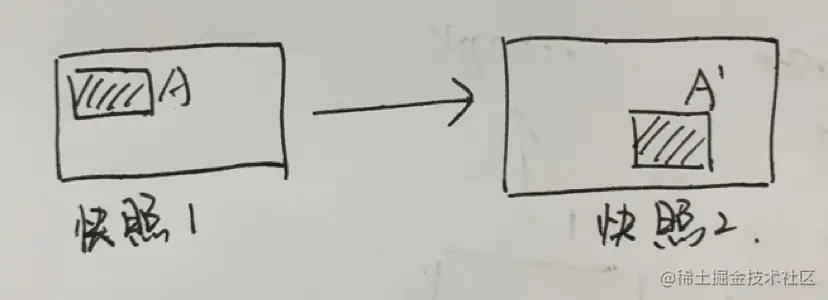 A
A'
快照1
快照2.
@稀土掘金技术社区